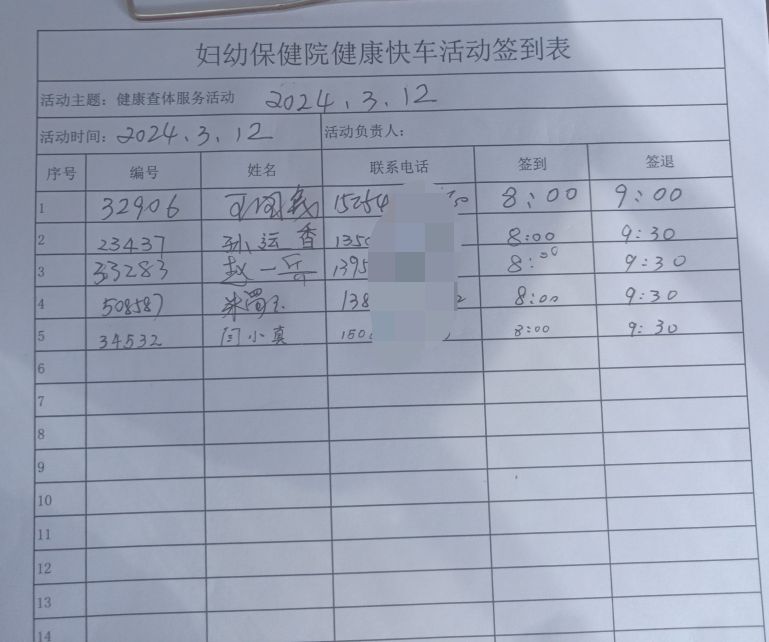 妇幼保健院健康快车活动签到表
活动主题：健康查体服务活动 2024.3.12
活动时间：2024.3.12 活动负责人：
序号 编号 姓名 联系电话 签到 签退
1 32906 8:00 9:00
2 23437 孙运香 135 8:00 9:30
3 33283 赵一 1395 8:00 9:30
4 508587 138 8:00 9:30
5 34532 闫小真 150 8:00 9:30
6
7
8
9
10
11
12
13
14